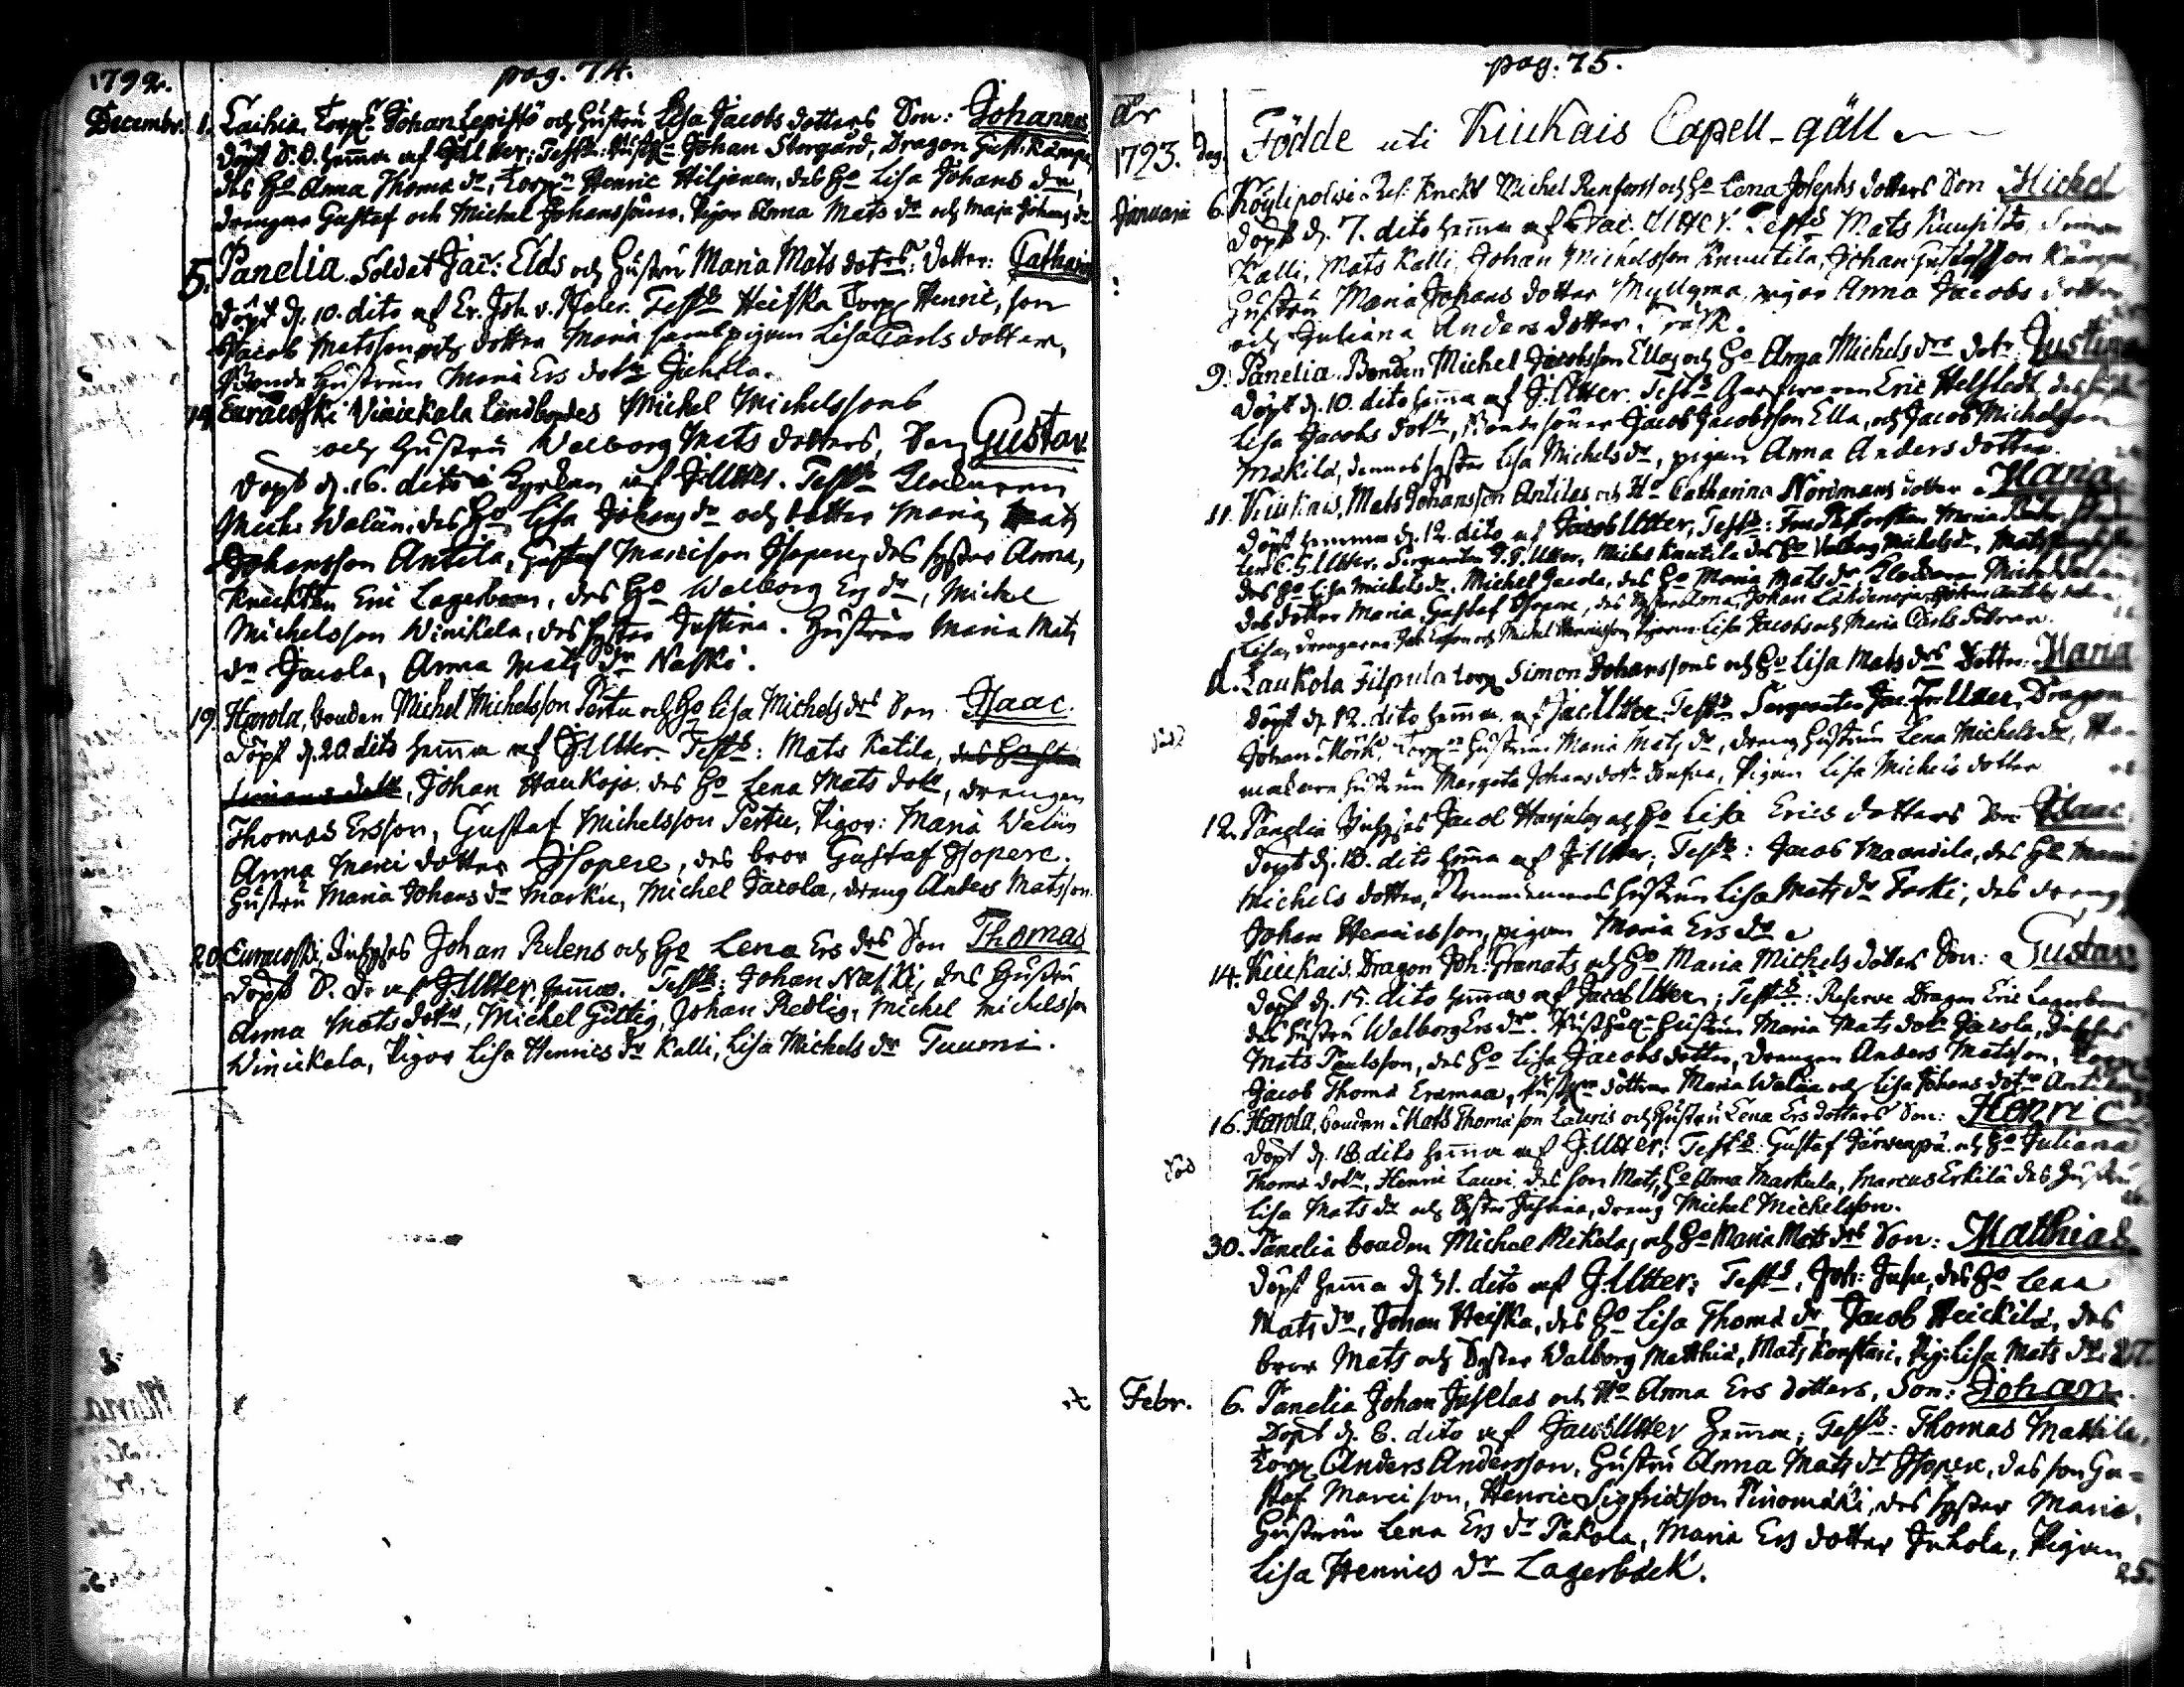 1792.
pag. 74.
Decembr. 1. Laihia, Torp. Johan Lepistö och Hustru Lisa Jacobs dotters Son: Johannes
döpt S. D. hemma af J. Utter; Test: Johan Storgård, Dragon Gust. Kämpe
des Ho Anna Thoma dr, Torp. Henric Hiljanen, des Ho Lisa Johans dr,
drengar Gustaf och Michel Johanssöner, Pigor Anna Mats dr och Maja Johans dr
5. Panelia. Soldat Jac: Elds och Hustru Maria Mats dotrs: dotter: Catharina
döpt d. 10. dito af Test Heiska Torp Henric, son
Jacob Matsson och dotter Maria samt pigan Lisa Carls dotter,
Bonde Hustrun Maria Ers dotr Juhola.
Euracoski Vinickala Landbondes Michel Michelssons
och Hustru Walborg Mats dotters, Son Gustav
döpt d. 16. dito i Kyrkan af J. Utter. Test Klockaren
Mich: Walin, des Ho Lisa Johans dr och dotter Maria, Mats
Johansson Antila, Gustaf Marcison Isopere, des syster Anna,
Knekten Eric Lagerbom, des Ho Walborg Ers dr, Michel
Michelsson Winikala, des syster Justina. Hustrun Maria Mats
dr Jacola, Anna Mats dr Naski.
19. Harola, bonden Michel Michelsson Pertu och Ho Lisa Michels drs Son Isaac.
Döpt d. 20. dito hemma af J. Utter. Test: Mats Katila,
Johan Haukoja, des Ho Lena Mats dotr, drengen
Thomas Ersson, Gustaf Michelsson Pertu, Pigor: Maria Walin
Anna Marci dotter Isopere, des bror Gustaf Isopere.
Hustru Maria Johans dr Marku, Michel Jacola, dreng Anders Matsson.
20. Euracoski, Inhyses Johan Relens och Ho Lena Ers drs Son Thomas
döpt S. D. af J. Utter hemma. Test: Johan Naski, des Hustru
Anna Mats dotr, Michel Gittig, Johan Redlig, Michel Michelsson
Winickala, Pigor Lisa Henrics dr Kalli, Lisa Michels dr Tuumi.
pag. 75.
År
1793. dag. Födde uti Kiukais Capell-gäll
Januarii 6. Köylipolvi Res. Knekt Michel Renfors och Ho Lena Josephs dotters Son Michel
döpt d. 7. dito hemma af Jac. Utter. Test Mats Kuusisto,
Kalli, Mats Kalli, Johan Michelsson Knuutila, Johan Gustafsson
Hustru Maria Johans dotter Myllymä, pigor Anna Jacobs dotter
och Juliana Anders dotter Träsk.
9. Panelia. Bonden Michel Jacobsson Ellas och Ho Anna Michels drs dotr Justina
döpt d. 10. dito hemma af J. Utter. Test Eric Helstedt, des
Lisa Jacobs dotr, Bonde söner Jacob Jacobsson Ella, och Jacob Michelsson
Makila, dennes syster Lisa Michels dr, pigan Anna Anders dotter.
11. Kiukais, Mats Johansson Antilas och Ho Catharina Nordmans dotter Maria
döpt hemma d. 12. dito af Jacob Utter, Test: Maria
C. G. Utter, Sergeanten J. F. Utter, Michel Knutila des Ho Walborg Michels dr,
des Ho Lisa Michels dr, Michel Jacola, des Ho Maria Mats dr, Klockaren Mich: Walin,
des dotter Maria, Gustaf Isopere, des syster Anna, Johan
Lisa, drengarne och Michel Henricsson, Pigorna Lisa Jacobs och Maria Carls dottrar.
d. Laukola Filpula torp Simon Johanssons och Ho Lisa Mats drs Dotter: Maria
döpt d. 12. dito hemma af Jac. Utter. Test Sergeanten Jac. Fr. Utter, Dragon
Johan Mörk, Torp Hustrun Maria Mats dr, dreng Hustrun Lena Michels dr,
Hustrun Margeta Johans dotr, Pigan Lisa Michels dotter
12. Panelia Inhyses Jacob Harjulas och Ho Lisa Erics dotters Son Isaac
döpt d. 13. dito hemma af J. Utter; Test: Jacob Maansila, des Ho Maria
Michels dotter, Hustrun Lisa Mats dr Torki, des dreng
Johan Henricsson, pigan Maria Ers dr
14. Kiukais. Dragon Joh: Granats och Ho Maria Michels dotters Son: Gustav
döpt d. 15. dito hemma af Jacob Utter; Test: Reserve Dragon Eric Lagerbom
des hustru Walborg Ers dr. Hustrun Maria Mats dotr Jacola, Inhyses
Mats Paulsson, des Ho Lisa Jacobs dotter, drengen Anders Matsson,
Jacob Thoma Eramaa, döttrar Maria Walin och Lisa Johans dotr Antila
16. Harola, bonden Mats Thomæson Lauris och Hustru Lena Ers dotters Son: Henric
Död
döpt d. 18. dito hemma af J. Utter; Test: Gustaf Järvenpä och Ho Juliana
Thoma dotr, Henric Lauri, des son Mats, Ho Anna Markula, Marcus Erkilä des Hustru
Lisa Mats dr och syster Justina, dreng Michel Michelsson.
30. Panelia bonden Michel Mikolas och Ho Maria Mats drs Son: Matthias
döpt hemma d. 31. dito af J. Utter; Test, Joh: Jusu, des Ho Lena
Mats dr, Johan Heiska, des Ho Lisa Thoma dr, Jacob Heickilä, des
bror Mats och syster Walborg Matthiæ, Mats Konstari, Pig: Lisa Mats dr. 27.
Febr. 6. Panelia Johan Juselas och Ho Anna Ers dotters, Son: Johan
Döpt d. 8. dito af Jacob Utter hemma; Test: Thomas Mattila,
Torp Anders Andersson, Hustru Anna Mats dr Isopere, des son Gu-
staf Marcison, Henric Sigfridsson Pinomäki, des syster Maria,
Hustrun Lena Ers dr Pakola, Maria Ers dotter Juhola, Pigan
Lisa Henrics dr Lagerbäck.
25.